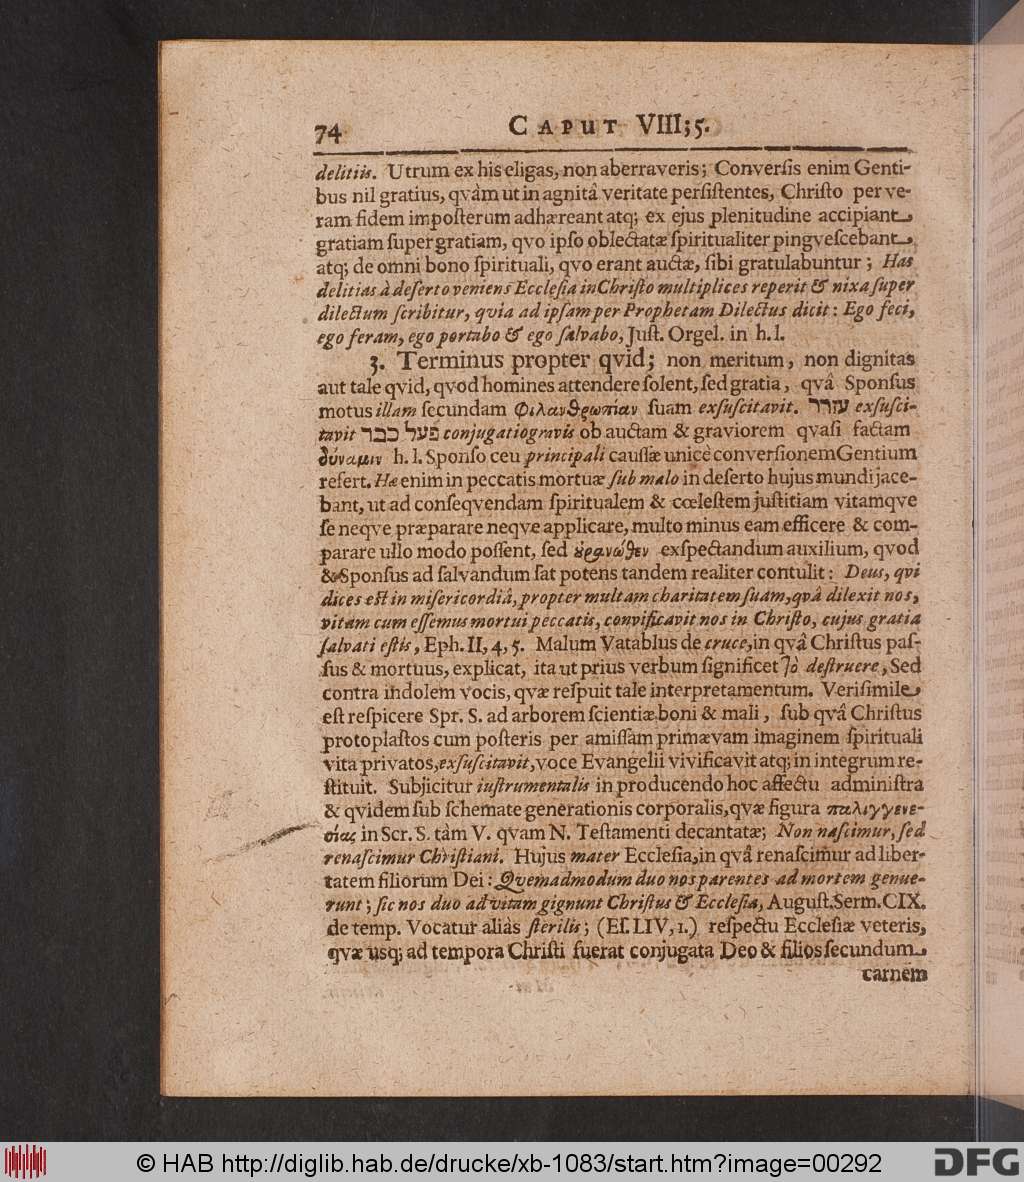 74 CAPUT VIII; 5.
delitiis. Utrum ex his eligas, non aberraveris; Converſis enim Genti-
bus nil gratius, qvàm ut in agnitâ veritate perſiſtentes, Chriſto per ve-
ram fidem impoſterum adhæreant atq; ex ejus plenitudine accipiant
gratiam ſuper gratiam, qvo ipſo oblectatæ ſpiritualiter pingveſcebant,
atq; de omni bono ſpirituali, qvo erant auctæ, ſibi gratulabuntur; Has
delitias à deſerto veniens Eccleſia in Chriſto multiplices reperit & nixa ſuper
dilectum ſcribitur, qvia ad ipſam per Prophetam Dilectus dicit: Ego feci,
ego feram, ego portabo & ego ſalvabo, Juſt. Orgel. in h. l.
3. Terminus propter qvid; non meritum, non dignitas
aut tale qvid, qvod homines attendere ſolent, ſed gratia, qvâ Sponſus
motus illam ſecundam φιλανθρωπίαν ſuam exſuſcitavit. עורר exſuſci-
tavit פעל כבד conjugatio gravis ob auctam & graviorem qvaſi factam
δύναμιν h. l. Sponſo ceu principali cauſſæ unicè converſionem Gentium
refert. Hæ enim in peccatis mortuæ ſub malo in deſerto hujus mundi jace-
bant, ut ad conſeqvendam ſpiritualem & cœleſtem juſtitiam vitamqve
ſe neqve præparare neqve applicare, multo minus eam efficere & com-
parare ullo modo poſſent, ſed ȣ̓ρανώθεν exſpectandum auxilium, qvod
& Sponſus ad ſalvandum ſat potens tandem realiter contulit: Deus, qvi
dices eſt in miſericordiâ, propter multam charitatem ſuam, qvâ dilexit nos,
vitam cum eſſemus mortui peccatis, convificavit nos in Chriſto, cujus gratia
ſalvati eſtis, Eph. II, 4, 5. Malum Vatablus de cruce, in qvâ Chriſtus paſ-
ſus & mortuus, explicat, ita ut prius verbum ſignificet τὸ deſtruere, Sed
contra indolem vocis, qvæ reſpuit tale interpretamentum. Veriſimile
eſt reſpicere Spr. S. ad arborem ſcientiæ boni & mali, ſub qvâ Chriſtus
protoplaſtos cum poſteris per amiſſam primævam imaginem ſpirituali
vita privatos, exſuſcitavit, voce Evangelii vivificavit atq; in integrum re-
ſtituit. Subjicitur iuſtrumentalis in producendo hoc affectu adminiſtra
& qvidem ſub ſchemate generationis corporalis, qvæ figura παλιγγενε-
σίας in Scr. S. tàm V. qvam N. Teſtamenti decantatæ; Non naſcimur, ſed
renaſcimur Chriſtiani. Hujus mater Eccleſia, in qvâ renaſcimur ad liber-
tatem filiorum Dei: Qvemadmodum duo nos parentes ad mortem genue-
runt; ſic nos duo ad vitam gignunt Chriſtus & Eccleſia, Auguſt. Serm. CIX.
de temp. Vocatur aliàs ſterilis; (Eſ. LIV, 1.) reſpectu Eccleſiæ veteris,
qvæ usq; ad tempora Chriſti fuerat conjugata Deo & filios ſecundum
carnem
© HAB http://diglib.hab.de/drucke/xb-1083/start.htm?image=00292 DFG